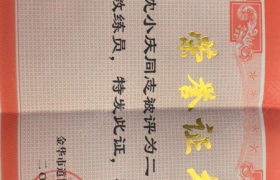 荣誉证
沈小庆同志被评为二
教练员，特发此证，
金华市道
二〇